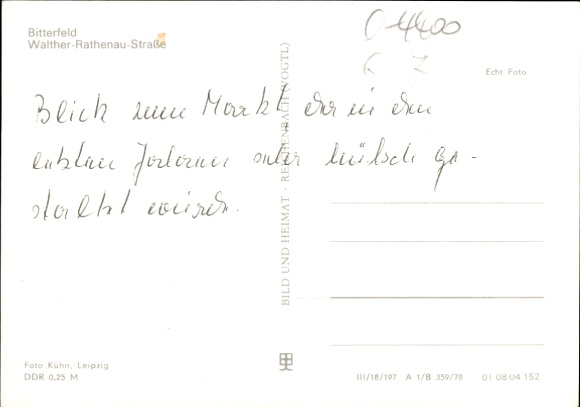 Bitterfeld
Walther-Rathenau-Straße
O-4400
Echt Foto
Blick zum Markt, der in den
letzten Jahren sehr hübsch ge-
staltet wurde.
BILD UND HEIMAT · REICHENBACH (VOGTL)
Foto Kühn, Leipzig
DDR 0,25 M
III/18/197 A 1/B 359/78 01 08 04 152